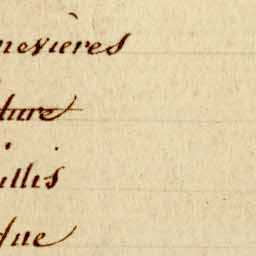 nevières
ture
illis
due